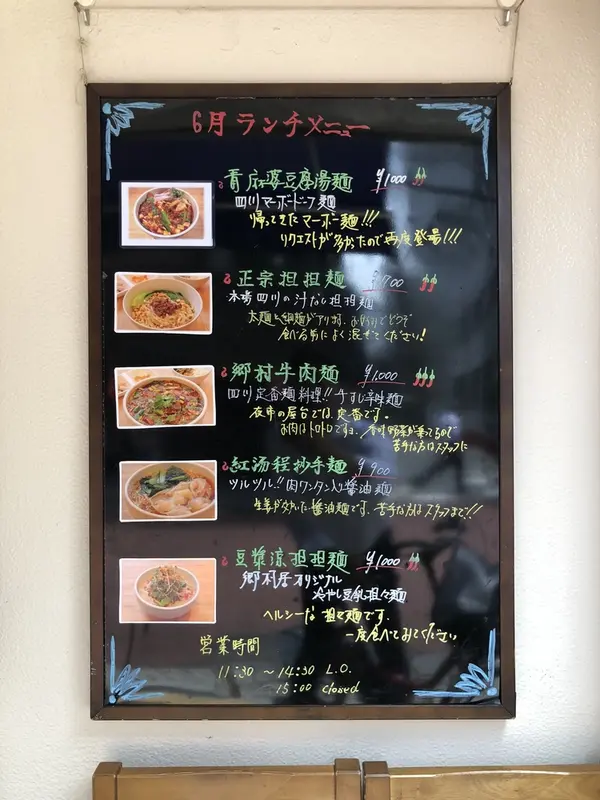 6月ランチメニュー
青麻婆豆腐湯麺 ¥1000
四川マーボードーフ麺
帰ってきたマーボー麺!!!
リクエストが多かたので再度登場!!!
正宗担担麺 ¥900
本場四川の汁なし担担麺
太麺と細麺がアリます。お好りでどうぞ
食べる前によく混ぜてください!
郷村牛肉麺 ¥1,000
四川定番麺料理!!牛すじ辛味麺
夜市の屋台では、定番です。
お肉はトロトロですョ、香味野菜が乗ってるので
苦手な方はスタッフに
紅汤程抄手麺 ¥900
ツルツル!!肉ワンタン入り醤油麺
生姜が効いた醤油麺です、苦手な方はスタッフまで!!
豆漿涼担担麺 ¥1000
郷村居オリジナル
冷やし豆乳担々麺
ヘルシーな担々麺です。
一度食べてみてください
営業時間
11:30 ～ 14:30 L.O.
15:00 closed